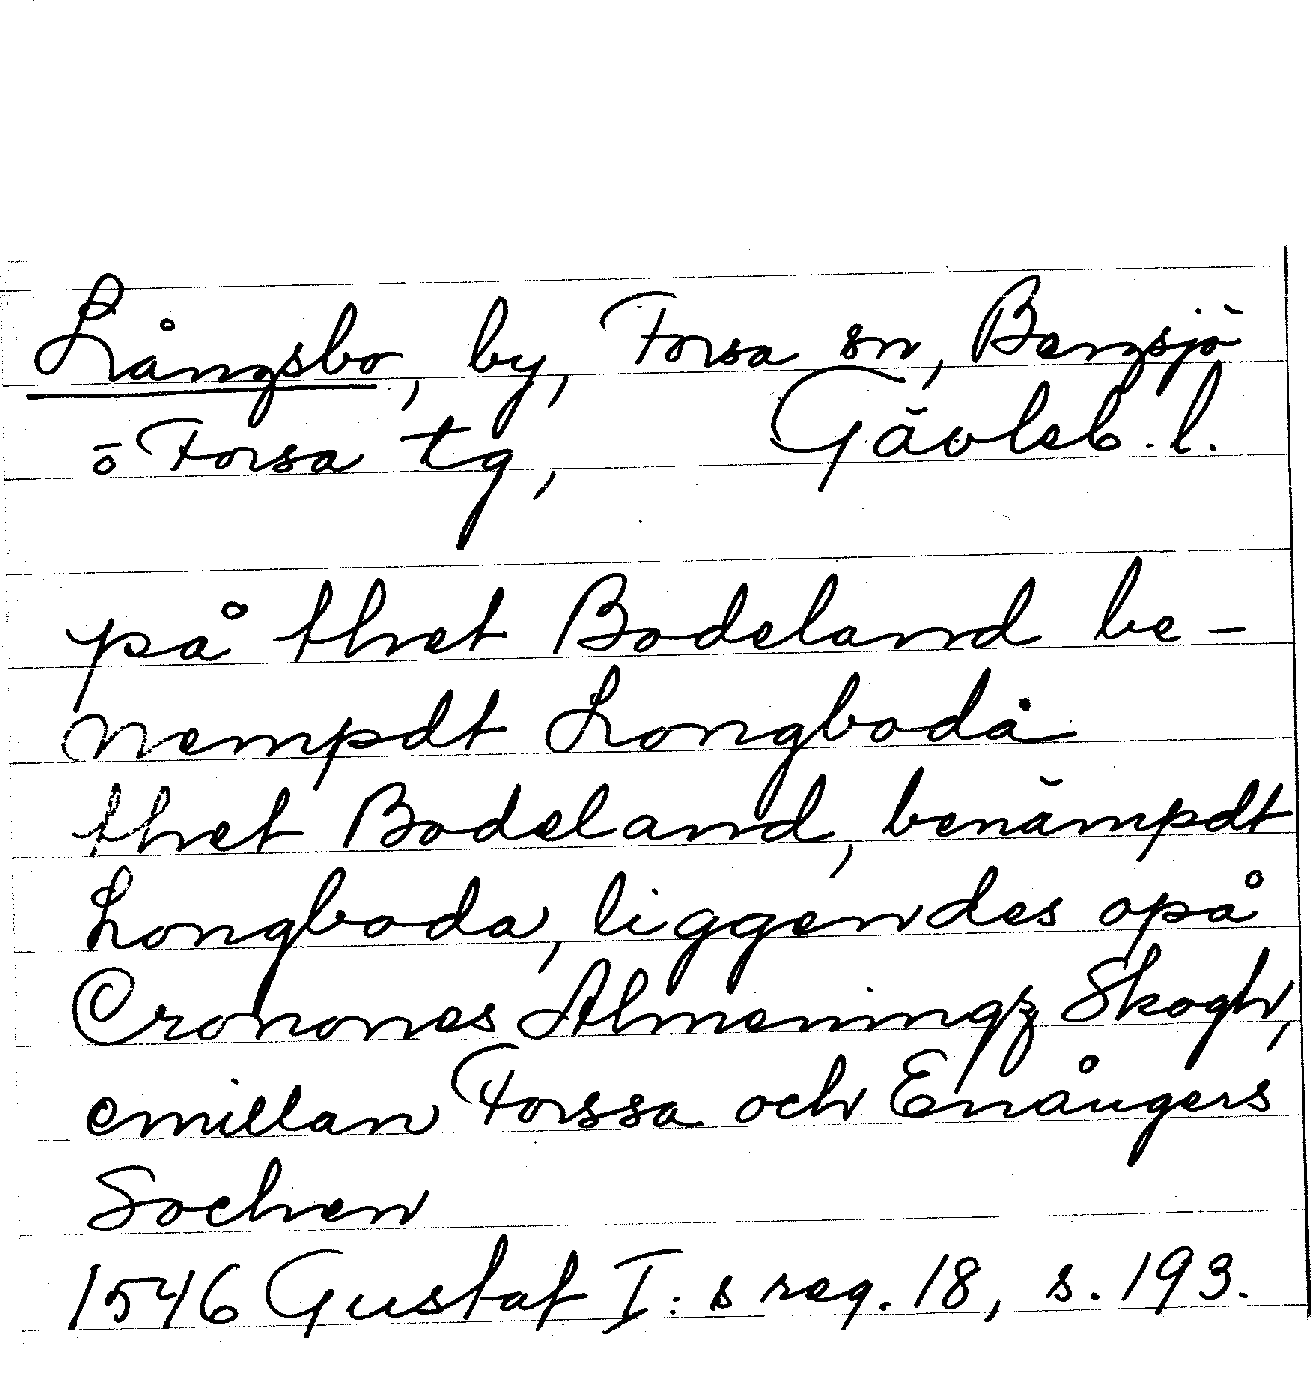 Långsbo, by, Forsa sn, Bergsjö
o Forsa tg, Gävleb. l.
på thet Bodeland be-
nempdt Longboda
thet Bodeland, benämpdt
Longboda, liggendes opå
Cronones Almeningz Skogh,
emillan Forssa och Enångers
Sochen
1546 Gustaf I:s reg. 18, s. 193.